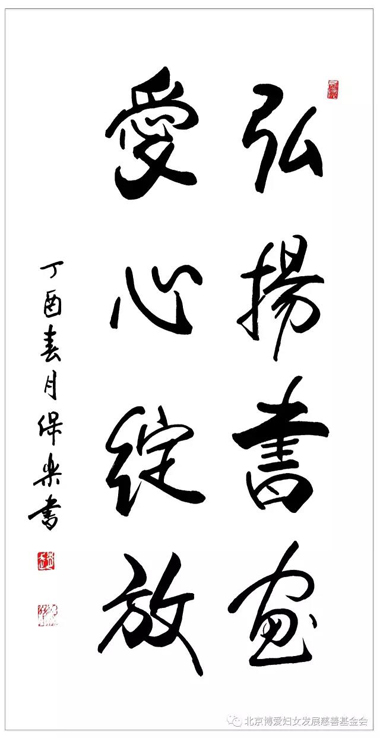 弘揚書画
愛心綻放
丁酉春月保楽书
北京博爱妇女发展慈善基金会